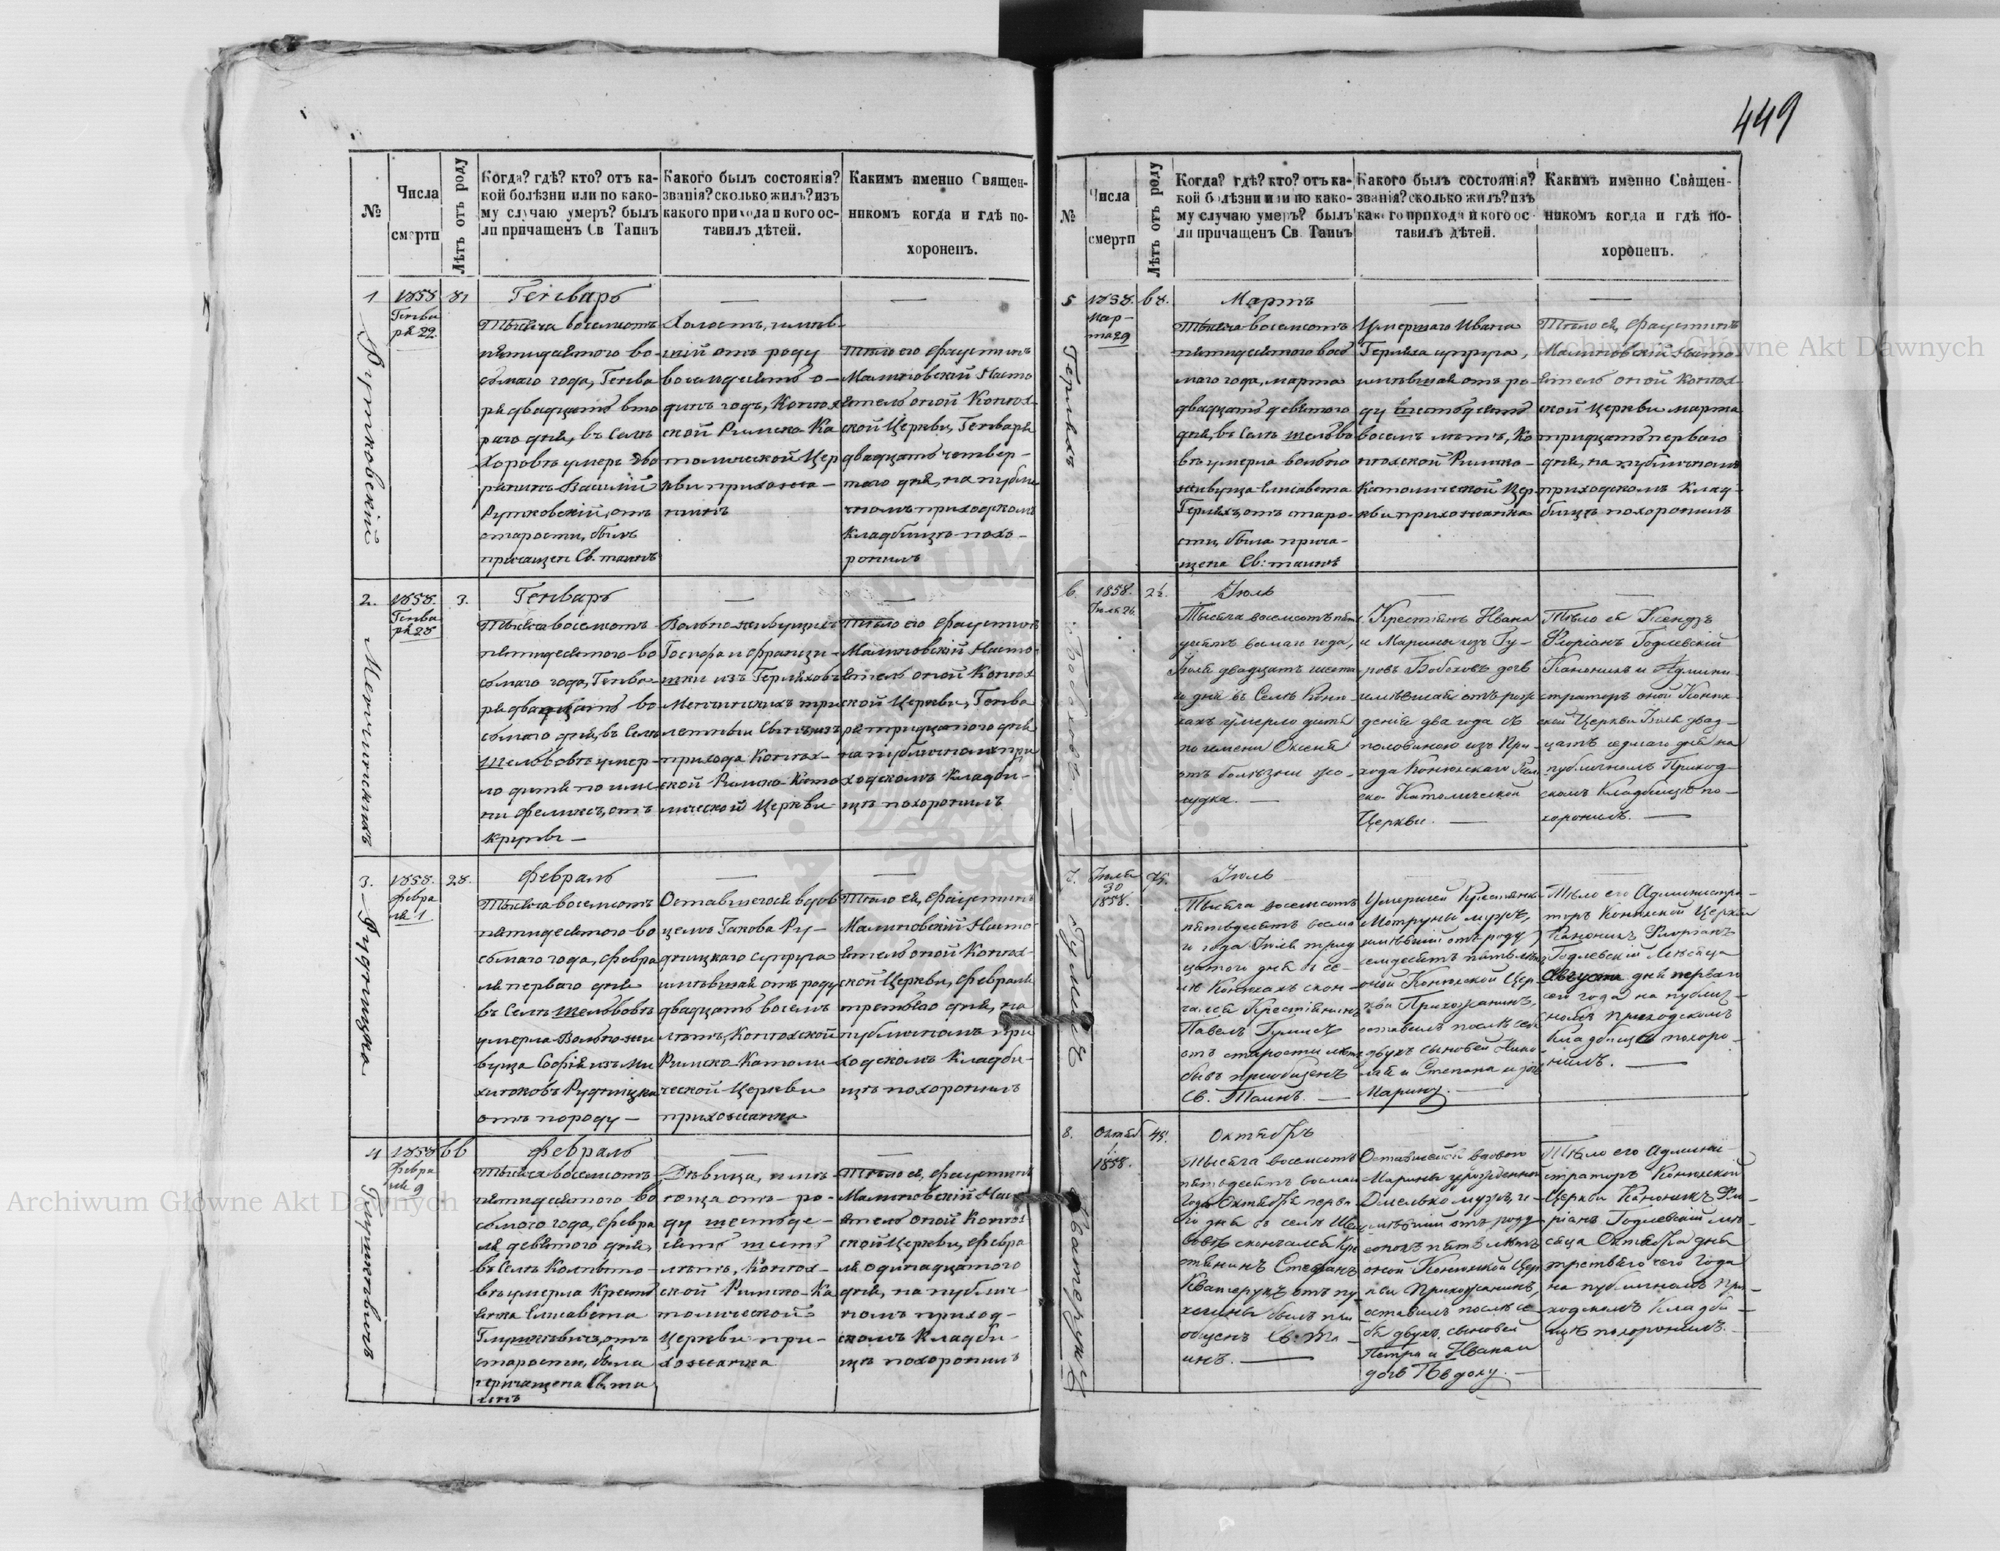 449
№
Числа
смерти
Лѣтъ отъ роду
Когда? гдѣ? кто? отъ ка-
кой болѣзни или по како-
му случаю умеръ? былъ
ли причащенъ Св Таинъ
Какого былъ состоянія?
званія? сколько жилъ? изъ
какого прихода и кого ос-
тавилъ дѣтей.
Какимъ именно Священ-
никомъ когда и гдѣ по-
хороненъ.
1
Рутковскій
1858
Генва
ря 22.
81
Генварь
Тысяча восемсотъ
пятидесятого во-
сьмаго года, Генва
ря двадцать вто
раго дня, въ Селѣ
Хоровѣ умеръ дво
рянинъ Василій
Рутковскій, отъ
старости, былъ
причащен Св. таинъ
Холостъ, имѣв-
шій отъ роду
восемдесятъ о-
динъ годъ, Конюх
ской Римско-Ка
толической Цер
кви прихожа-
нинъ
Тѣло его Фаустинъ
Малиновскій Насто
ятель оной Конюх-
ской Церкви, Генваря
двадцать четвер-
таго дня, на публи
чномъ приходскомъ
кладбищѣ похо-
ронилъ
2.
1858.
Генва
ря 28
3.
Генварь
Тысяча восемсотъ
пятидесятого во
сьмаго года, Генва-
ря двадцать во
сьмаго дня, въ Селѣ
Шельвовѣ умер-
ло дитя по име
ни Феликсъ, отъ
крупы —
Вольно живущихъ
Іосифа и Францы-
шки изъ Герляховъ
лѣтный Сынъ изъ
прихода Конюх-
ской Римско-Като
лической Церкви
Тѣло его Фаустинъ
Малиновскій Насто
ятель оной Конюх
ской Церкви, Генва
ря тридцатого дня
на публичномъ при
ходскомъ кладби-
щѣ похоронилъ
3.
Рудницка
1858.
Февра
ля 1
28.
Февраль
Тысяча восемсотъ
пятидесятого во
сьмаго года, Февра
ля перваго дня
въ Селѣ Шельвовѣ
умерла Вольно жи
вуща Софія изъ Ми
Рудницка
отъ породу —
Оставшегося вдов
цемъ Іакова Ру-
дницкаго супруга
имѣвшая отъ роду
двадцать восемъ
лѣтъ, Конюхской
Римско-Католи-
ческой Церкви
прихожанка
Тѣло ея, Фаустинъ
Малиновскій Насто-
ятель оной Конюх-
ской Церкви, Февраля
третьяго дня, на
публичномъ при
ходскомъ кладби-
щѣ похоронилъ
4
1858
Февра
ля 9
66
Февраль
Тысяча восемсотъ
пятидесятого во
сьмаго года, Февра
ля девятого дня,
умерла Кресть
янка Елисавета
старости, была
причащена Св. та
инъ
Дѣвица, имѣ
ющая отъ ро-
ду шестьде-
сятъ шесть
лѣтъ, Конюх-
ской Римско-Ка
толической
Церкви при-
хожанка
Тѣло ея, Фаустинъ
Малиновскій Наст
ятель оной Конюх
ской Церкви, Февра
ля одинадцатого
дня, на публич-
номъ приход-
скомъ кладби-
щѣ похоронилъ
№
Числа
смерти
Лѣтъ отъ роду
Когда? гдѣ? кто? отъ ка-
кой болѣзни или по како-
му случаю умеръ? былъ
ли причащенъ Св Таинъ
Какого былъ состоянія?
званія? сколько жилъ? изъ
какого прихода и кого ос-
тавилъ дѣтей.
Какимъ именно Священ-
никомъ когда и гдѣ по-
хороненъ.
5
Герляхъ
1858.
Мар-
та 29
68.
Мартъ
Тысяча восемсотъ
пятидесятого вось
маго года, марта
двадцать девятого
дня, въ Селѣ Шельво
вѣ умерла вольно
живуща Елисавета
Герляхъ, отъ старо-
сти, была прича-
щена Св: таинъ
Умершаго Ивана
Герляха супруга,
имѣвшая отъ ро-
ду шестьдесятъ
восемъ лѣтъ, Ко
нюхской Римско-
Католической Цер
кви прихожанка
Тѣло ея, Фаустинъ
Малиновскій Насто
ятель оной Конюх
ской Церкви марта
тридцать перваго
дня, на публичномъ
приходскомъ клад-
бищѣ похоронилъ
6.
1858.
Іюль 26.
2½.
Іюль
Тысяча восемсотъ пять
десятъ восьмаго года,
Іюля двадцать шеста
го дня въ Селѣ Коню
хахъ умерло дитя
по имени Оксенія
отъ болѣзни же-
лудка. —
Крестьянъ Ивана
и Марины изъ Гу-
ровъ Бобоховъ дочь
имѣвшая отъ рож
денія два года съ
половиною изъ При-
хода Конюхскаго Рим
ско-Католической
Церкви. —
Тѣло ея Ксендзъ
Флоріанъ Годлевскій
Каноникъ и Админи
страторъ оной Конюх-
ской Церкви Іюля двад-
цать седмаго дня на
публичномъ Приход-
скомъ кладбищѣ по-
хоронилъ. —
7.
Іюля
30
1858.
75.
Іюль
Тысяча восемсотъ
пятьдесятъ восьма
го года Іюля трид
цатого дня въ се-
лѣ Конюхахъ скон-
чался Крестьянинъ
Павелъ Гуминъ
отъ старости лѣтъ
бывъ пріобщенъ
Св. Таинъ. —
Умершей Крестьянки
Мотруны мужъ,
имѣвшій отъ роду
семдесятъ пять лѣтъ
оной Конюхской Цер-
кви Прихожанинъ,
оставилъ послѣ себя
двухъ сыновей Нико-
лая и Степана и дочь
Марину. —
Тѣло его Администра-
торъ Конюхской Церкви
Каноникъ Флоріанъ
Годлевскій Мѣсяца
Августа дня перваго
сего года на публич-
номъ приходскомъ
кладбищѣ похоро-
нилъ. —
8.
Октяб
1
1858.
45.
Октябрь
Тысяча восемсотъ
пятьдесятъ восьмаго
года Октября перва
го дня въ селѣ Шель
вовѣ скончался Кре
стьянинъ Стефанъ
Кватерукъ отъ пу
хлины былъ прі
общенъ Св. Та-
инъ. —
Оставшейся вдовою
Марины урожденной
Омелько мужъ, и-
мѣвшій отъ роду
сорокъ пять лѣтъ
оной Конюхской Цер
кви Прихожанинъ,
оставилъ послѣ се-
бя двухъ сыновей
Петра и Ивана и
дочь Ѳедору. —
Тѣло его Админи-
страторъ Конюхской
Церкви Каноникъ Фло
ріанъ Годлевскій мѣ-
сяца Октября дня
третьяго сего года
на публичномъ При-
ходскомъ кладби-
щѣ похоронилъ. —
Archiwum Główne Akt Dawnych
Archiwum Główne Akt Dawnych